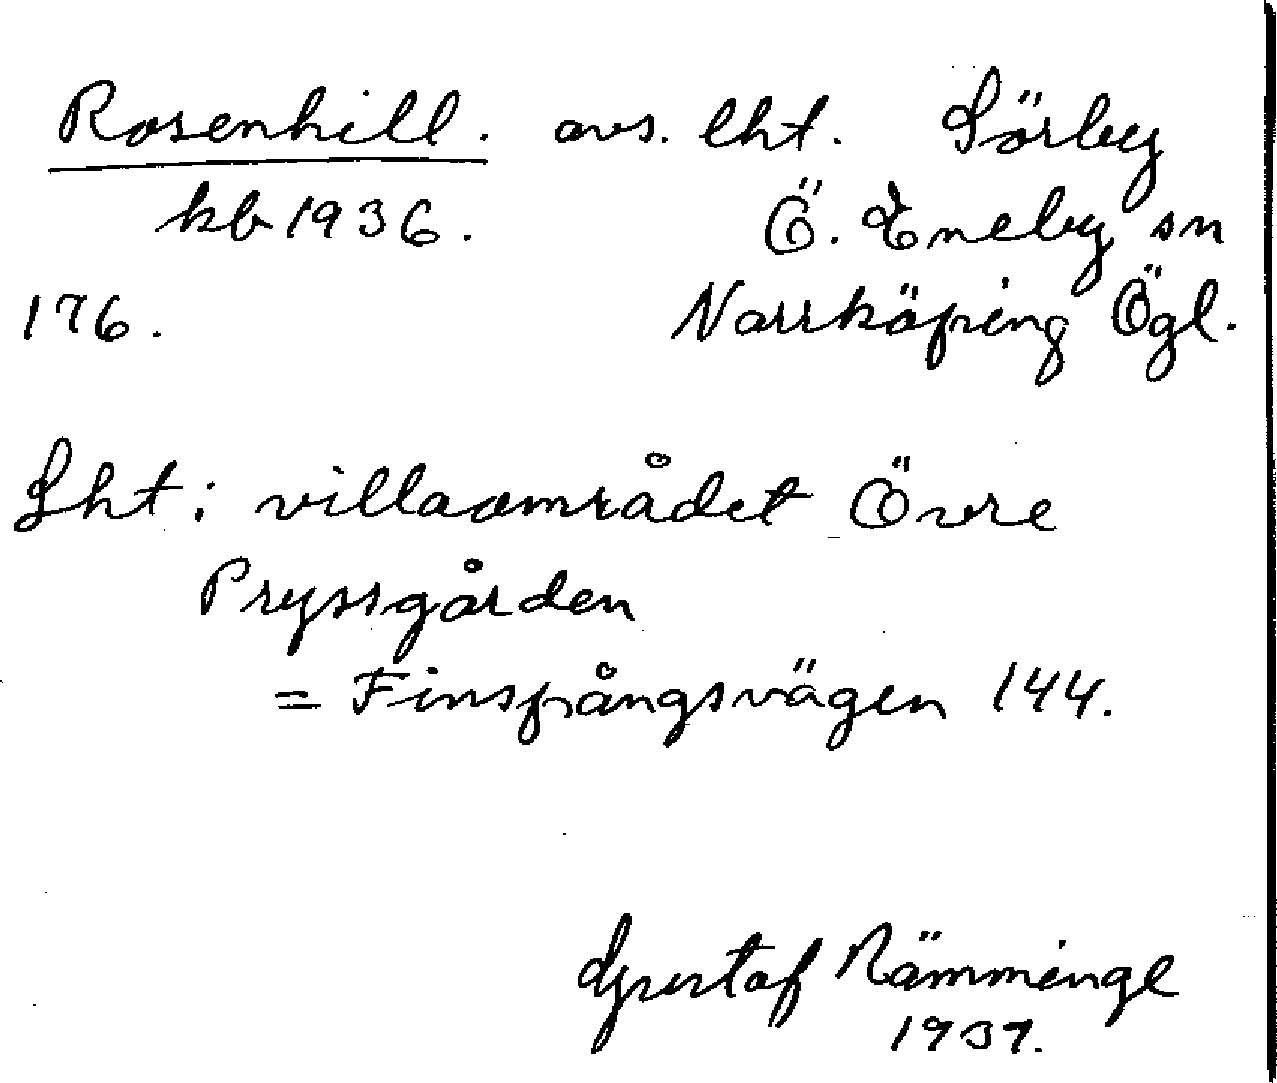 Rosenhill. avs. lht. Sörby
kb 1936. Ö. Eneby sn
176. Norrköping Ögl.
Lht: villaområdet Övre
Pryssgården
= Finspångsvägen 144.
Gustaf Rämminge
1937.